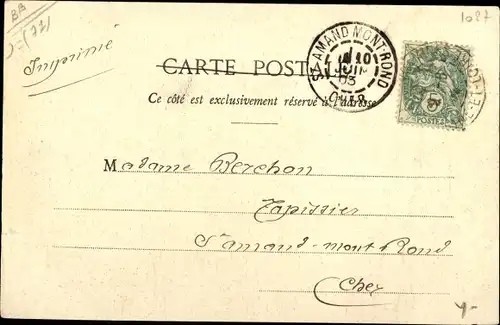 BB
(77)
1087
Imprimé
CARTE POSTALE
Ce côté est exclusivement réservé à l'adresse
ST AMAND MONTROND
10
JUIL
03
CHER
POSTES
Madame Berchon
Tapissier
St amand-mont Rond
Cher